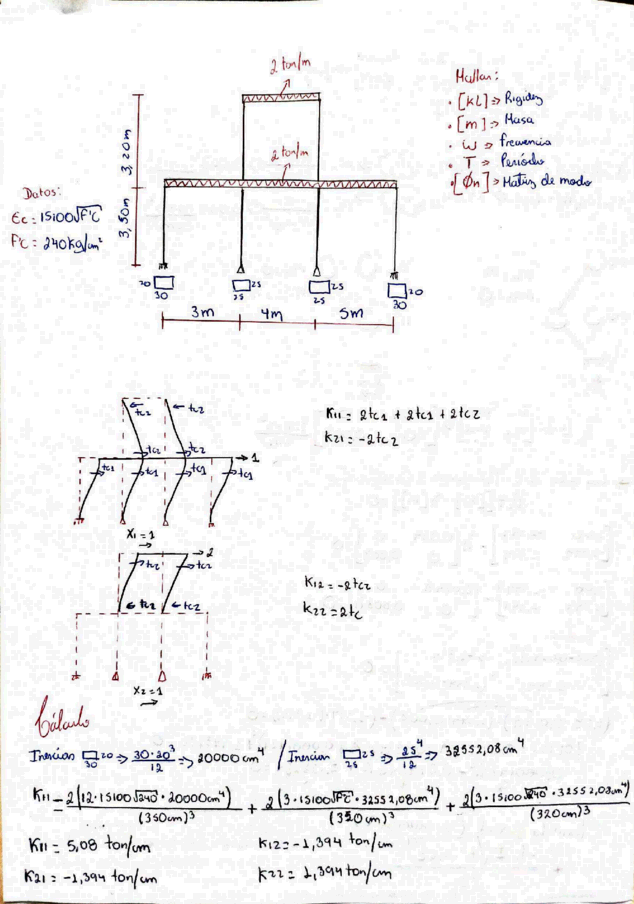 2 ton/m
Hallar:
· [KL] => Rigidez
· [m] => Masa
· ω => frecuencia
· T => Período
· [Φn] => Matriz de modo
3,20m
2 ton/m
Datos:
Ec = 15100√F'C
F'C = 240kg/cm²
3,50m
20 30
25 25
25 25
20 30
3m 4m 5m
tc2 tc2
K11 = 2tc1 + 2tc1 + 2tc2
K21 = -2tc2
tc2 tc2 1
tc1 tc1 tc1 tc1
X1 = 1
2
tc2 tc2
K12 = -2tc2
tc2 tc2
K22 = 2tc
X2 = 1
Cálculo
Inercias 20 30 => 30·20³/12 => 20000 cm⁴ / Inercian 25 25 => 25⁴/12 => 32552,08 cm⁴
K11 = 2(12·15100√240·20000cm⁴)/(350cm)³ + 2(3·15100√F'C·32552,08cm⁴)/(350cm)³ + 2(3·15100√240·32552,08cm⁴)/(320cm)³
K11 = 5,08 ton/cm K12 = -1,394 ton/cm
K21 = -1,394 ton/cm K22 = 1,394 ton/cm